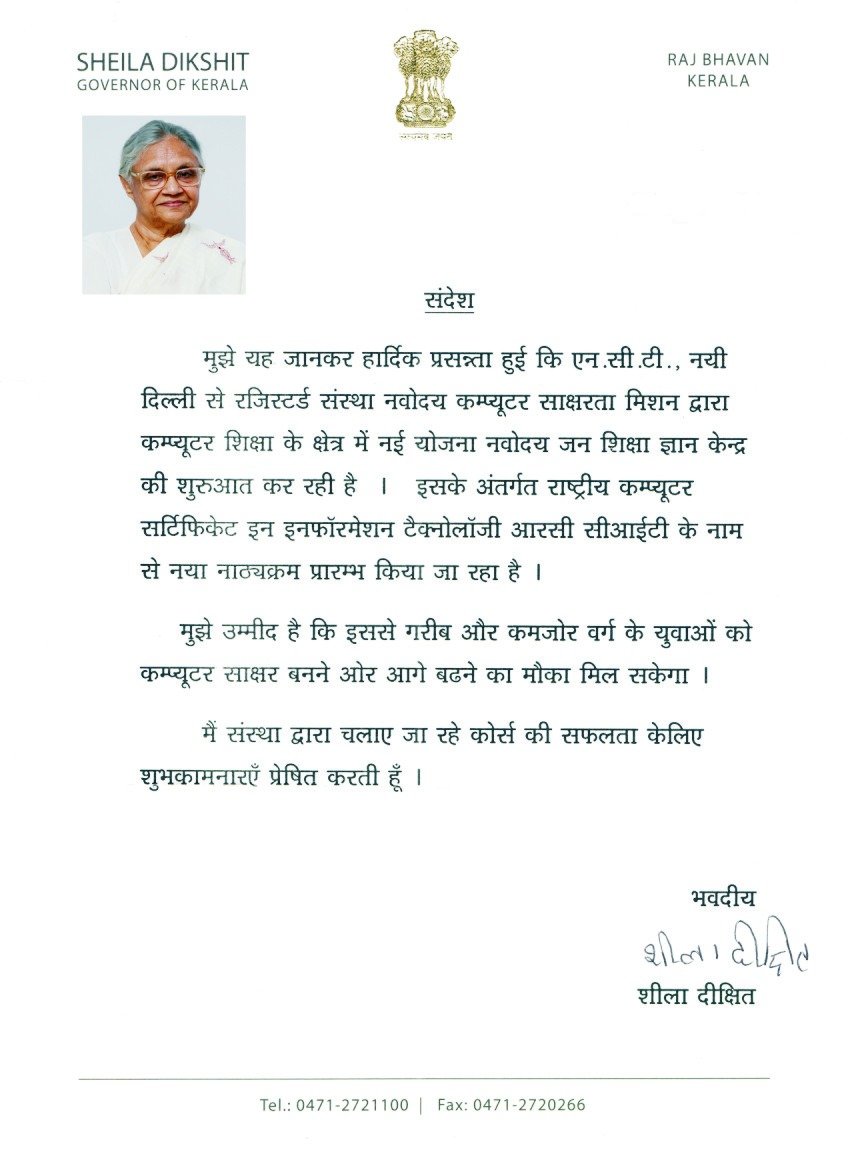 SHEILA DIKSHIT
GOVERNOR OF KERALA
RAJ BHAVAN
KERALA
सत्यमेव जयते
संदेश
मुझे यह जानकर हार्दिक प्रसन्नता हुई कि एन.सी.टी., नयी
दिल्ली से रजिस्टर्ड संस्था नवोदय कम्प्यूटर साक्षरता मिशन द्वारा
कम्प्यूटर शिक्षा के क्षेत्र में नई योजना नवोदय जन शिक्षा ज्ञान केन्द्र
की शुरुआत कर रही है । इसके अंतर्गत राष्ट्रीय कम्प्यूटर
सर्टिफिकेट इन इनफॉरमेशन टैक्नोलॉजी आरसी सीआईटी के नाम
से नया नाठ्यक्रम प्रारम्भ किया जा रहा है ।
मुझे उम्मीद है कि इससे गरीब और कमजोर वर्ग के युवाओं को
कम्प्यूटर साक्षर बनने ओर आगे बढने का मौका मिल सकेगा ।
मैं संस्था द्वारा चलाए जा रहे कोर्स की सफलता केलिए
शुभकामनाएँ प्रेषित करती हूँ ।
भवदीय
शीला दीक्षित
शीला दीक्षित
Tel.: 0471-2721100 | Fax: 0471-2720266